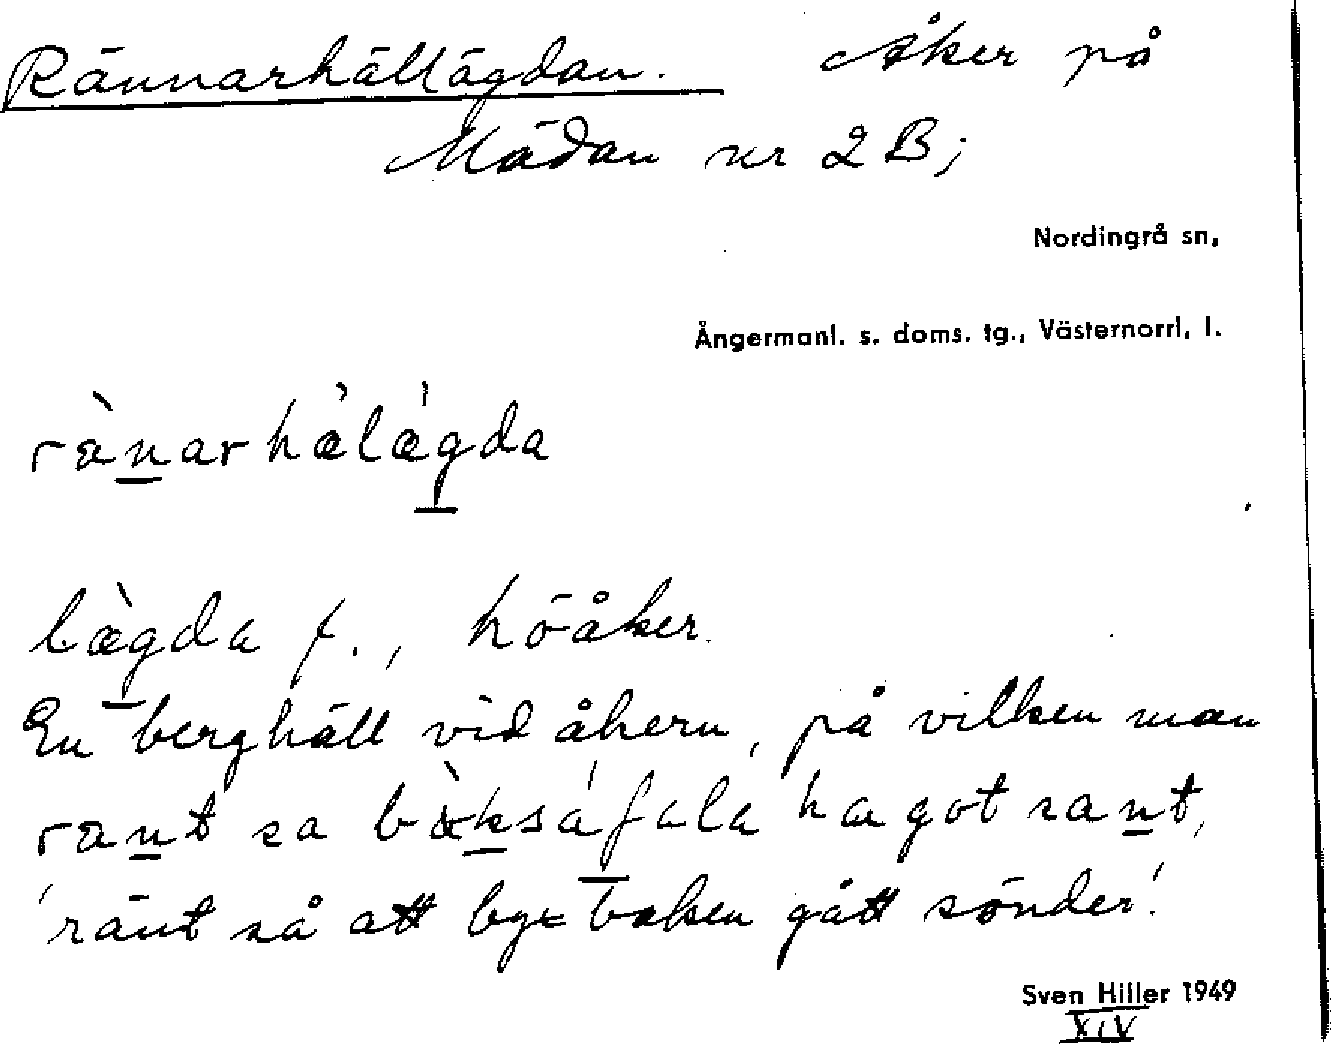 Rännarhällägdan. Åker på
Mädan nr 2 B;
Nordingrå sn,
Ångermanl. s. doms. tg., Västernorrl. l.
rànarhälägda
lægda f., höåker.
En berghäll vid åkern, på vilken man
rant sa hagot sant,
'ränt så att gått sönder'.
Sven Hiller 1949
XIV